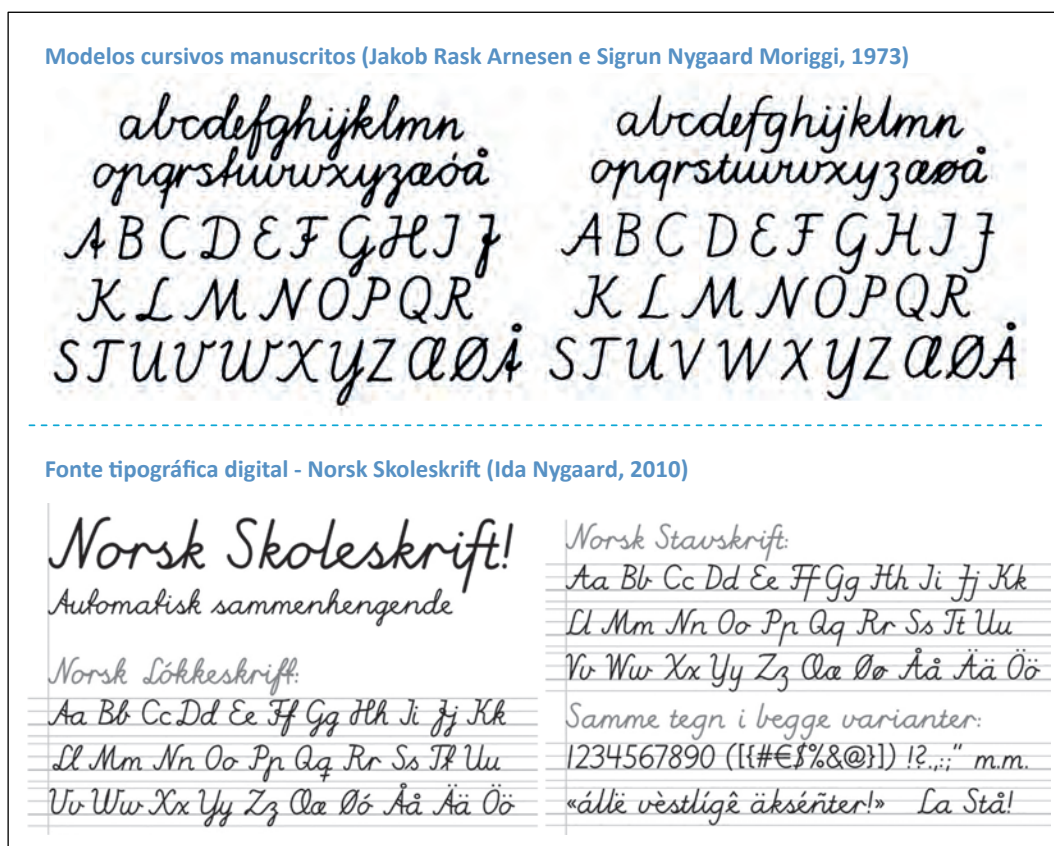 Modelos cursivos manuscritos (Jakob Rask Arnesen e Sigrun Nygaard Moriggi, 1973)
abcdefghijklmn
opqrstuvwxyzæóå
ABCDEFGHIJ
KLMNOPQR
STUVWXYZÆØÅ
abcdefghijklmn
opqrstuvwxyzæøå
ABCDEFGHIJ
KLMNOPQR
STUVWXYZÆØÅ
Fonte tipográfica digital - Norsk Skoleskrift (Ida Nygaard, 2010)
Norsk Skoleskrift!
Automatisk sammenhengende
Norsk Lókkeskrift:
Aa Bb Cc Dd Ee Ff Gg Hh Ii Jj Kk
Ll Mm Nn Oo Pp Qq Rr Ss Tt Uu
Vv Ww Xx Yy Zz Ææ Øó Åå Ää Öö
Norsk Stavskrift:
Aa Bb Cc Dd Ee Ff Gg Hh Ii Jj Kk
Ll Mm Nn Oo Pp Qq Rr Ss Tt Uu
Vv Ww Xx Yy Zz Ææ Øø Åå Ää Öö
Samme tegn i begge varianter:
1234567890 ([{#€$%&@}]) !?.,:;" m.m.
«állë vèstlígê äkséñter!» La Stå!